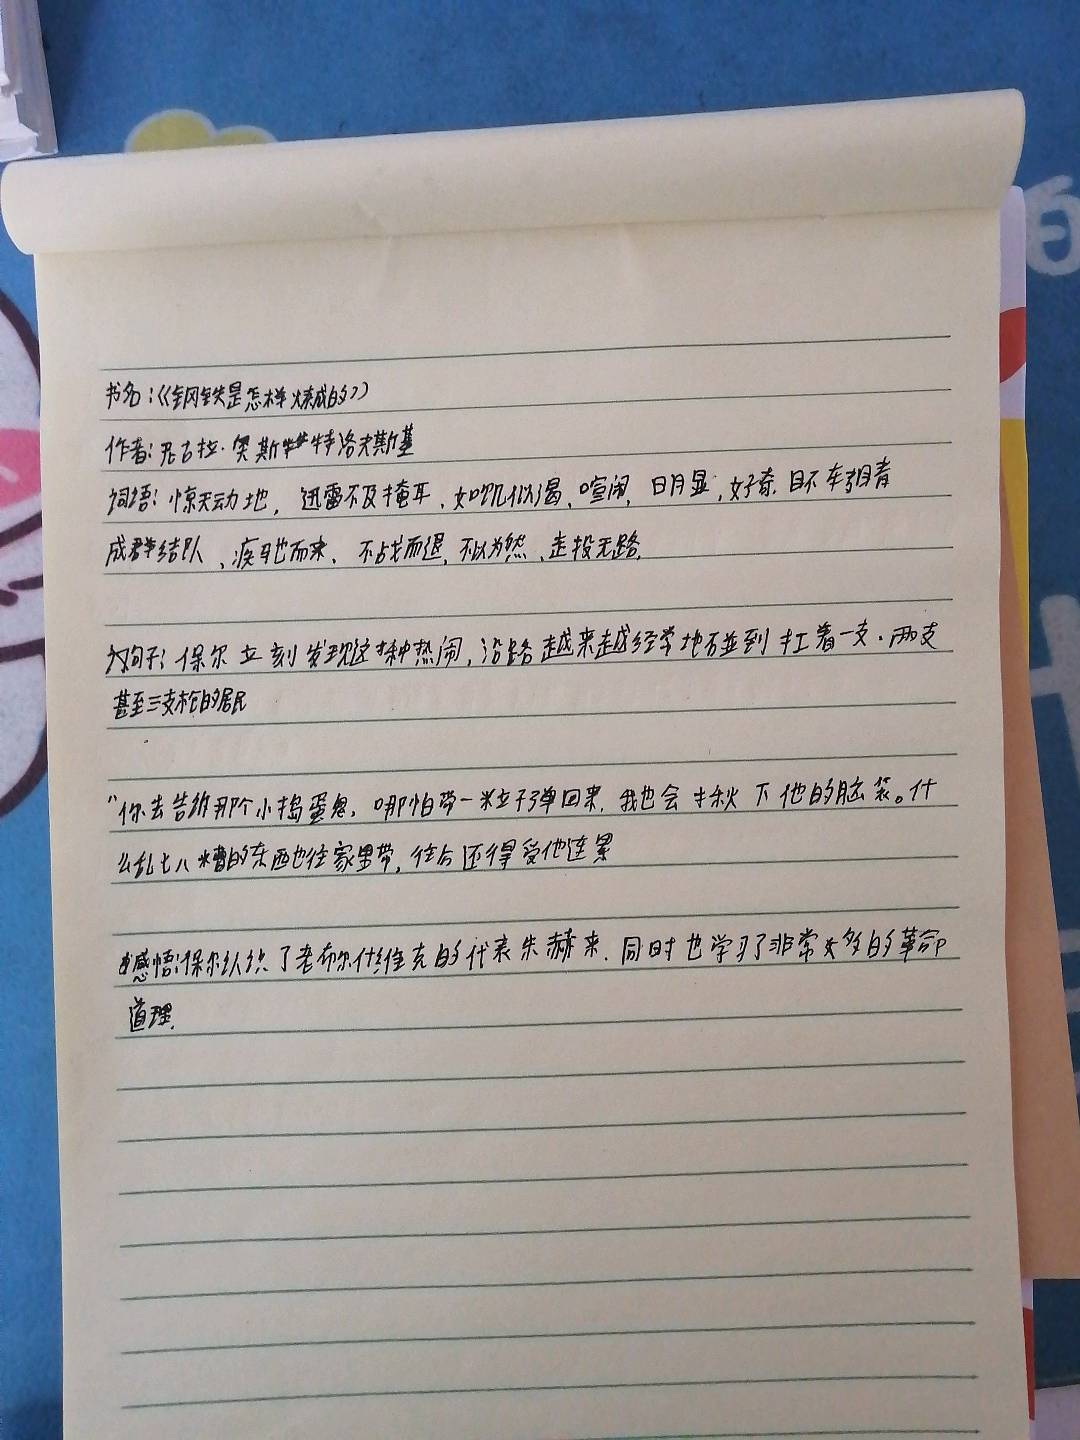 书名：《钢铁是怎样炼成的》
作者：尼古拉·奥斯特洛夫斯基
词语：惊天动地，迅雷不及掩耳、如饥似渴、喧闹，明显，好奇、目不
成群结队、疾驰而来、不战而退，不以为然、走投无路，
好句子：保尔立刻发现这种热闹，沿路越来越经常地碰到扛着一支、两支
甚至三支枪的居民
"你去告诉那个小捣蛋鬼，哪怕带一粒子弹回来，我也会揪下他的脑袋。什
么乱七八糟的东西也往家里带，往后还得受他连累
感悟：保尔认识了老布尔什维克的代表朱赫来，同时也学习了非常多的革命
道理，